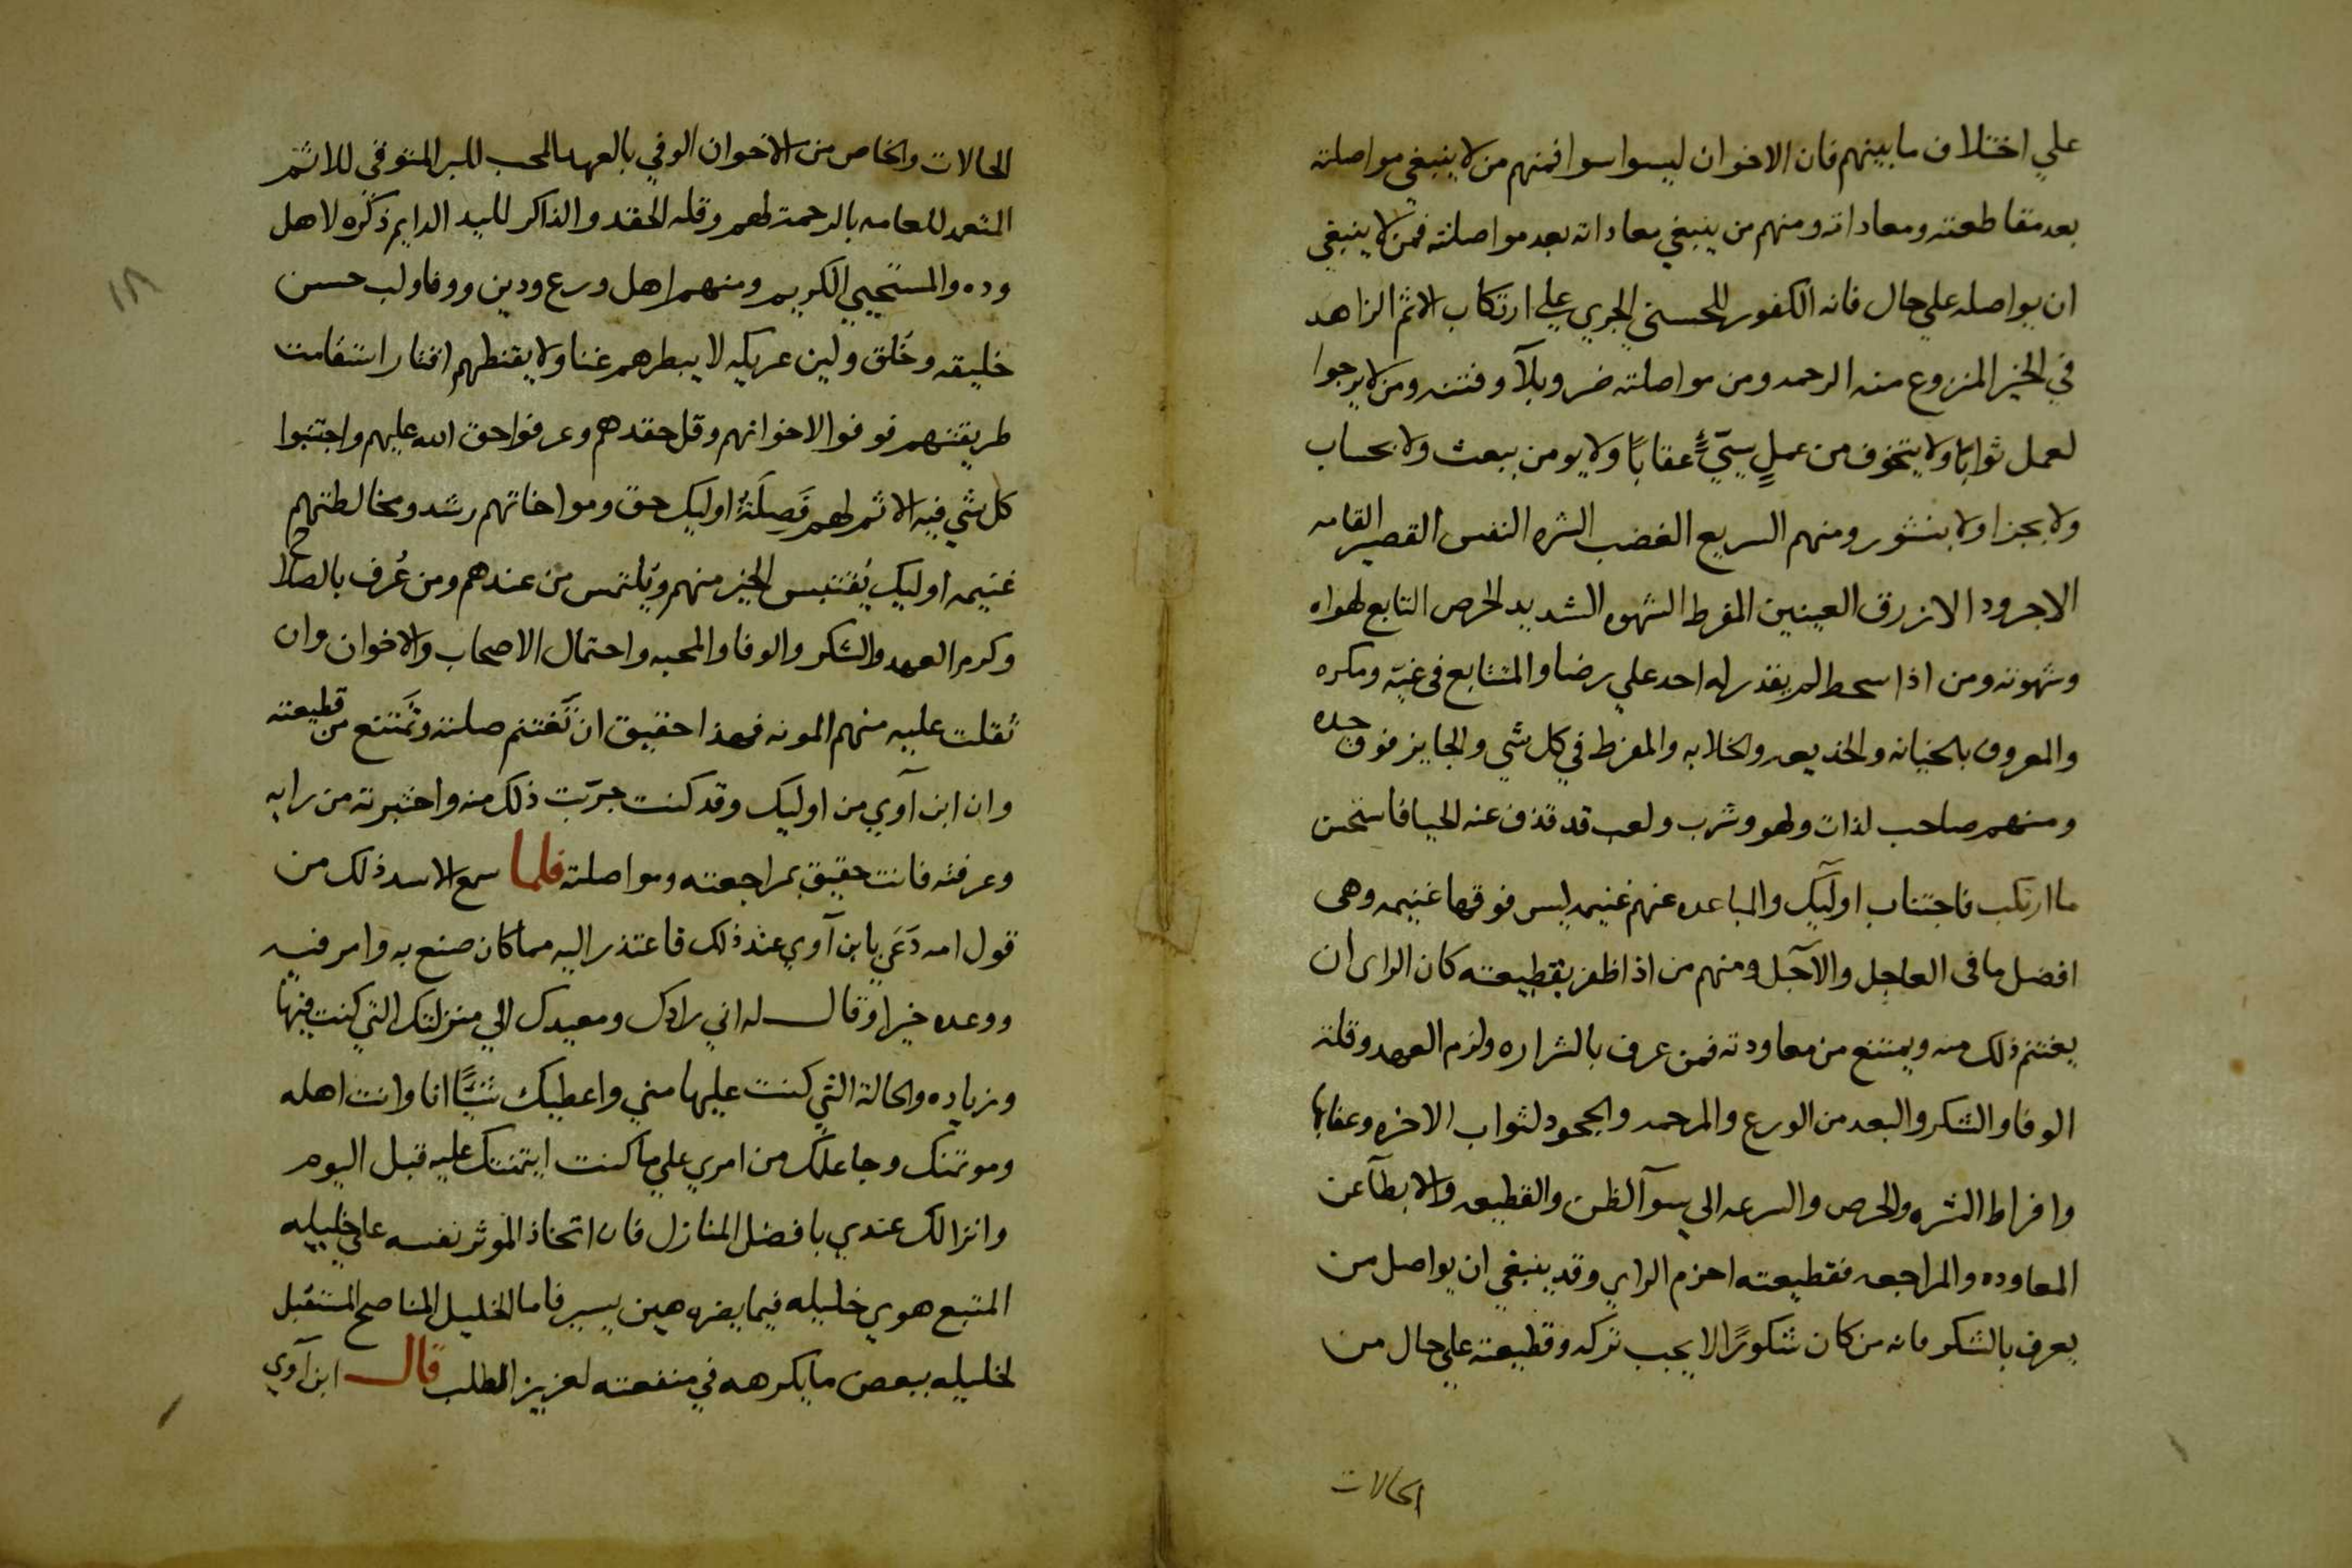 علي اختلاف ما بينهم فان الاخوان ليسوا سوا فمنهم من لا ينبغي مواصلته
بعد مقاطعته ومعاداته ومنهم من ينبغي معاداته بعد مواصلته فمن لا ينبغي
ان يواصله علي حال فانه الكفور للحسني الجري علي ارتكاب الاثم الزاهد
في الخير المنزوع منه الرحمه ومن مواصلته ضر وبلآ وفتنه ومن لا يرجوا
لعمل ثوابًا ولا يتخوف من عملٍ سيّيءٍ عقابًا ولا يومن ببعث ولا بحساب
ولا بجزا ولا بنشور ومنهم السريع الغضب الشره النفس القصير القامه
الاجرود الازرق العينين المفرط الشهوه الشديد الحرص التابع لهواه
وشهوته ومن اذا سخط لم يقدر له احد علي رضا والمتتابع في غيّه ومكره
والمعروف بالخيانه والخديعه والخلابه والمفرط في كل شي والجايز فوق حده
ومنهم صاحب لذات ولهو وشرب ولعب قد قذف عنه الحيا فاستحسن
ما ارتكب فاجتناب اوليك والمباعده عنهم غنيمه ليس فوقها غنيمه وهي
افضل ما في العاجل والآجل ومنهم من اذا ظفر بقطيعته كان الراي ان
يغتنم ذلك منه ويمتنع من معاودته فمن عرف بالشراره ولزم العهد وقلة
الوفا والشكر والبعد من الورع والمرحمه والجحود لثواب الاخره وعقابها
وافراط الشره والحرص والسرعه الي سوآ الظن والقطيعه والابطآ عن
المعاوده والمراجعه فقطيعته احزم الراي وقد ينبغي ان يواصل من
يعرف بالشكر فانه من كان شكورًا لا يجب تركه وقطيعته علي حال من
الحالات
١٨
الحالات والخاص من الاخوان الوفي بالعهد المحب للبر المتوقي للاثم
المتعهد للعامه بالرحمة لهم وقله الحقد والذاكر لليد الدايم ذكره لاهل
وده والمستحيي الكريم ومنهم اهل ورع ودين ووفا ولب حسن
خليقه وخلق ولين عريكه لا يبطرهم غنا ولا يقنطهم اقتار استقامت
طريقتهم فوفوا لاخوانهم وقل حقدهم وعرفوا حق الله عليهم واجتنبوا
كل شي فيه الاثم لهم فَصِلَةُ اوليك حق ومواخاتهم رشد ومخالطتهم
غنيمه اوليك يُقتبس الخير منهم ويُلتمس من عندهم ومن عُرف بالصلاح
وكرم العهد والشكر والوفا والمحبه واحتمال الاصحاب والاخوان وان
ثقلت عليه منهم المونه فهذا حقيق ان تَغتنم صلته وتَمتنع من قطيعته
وان ابن آوي من اوليك وقد كنت جرّبت ذلك منه واختبرته من رايه
وعرفته فانت حقيق بمراجعته ومواصلته فلما سمع الاسد ذلك من
قول امه دَعَي بابن آوي عند ذلك فاعتذر اليه مما كان صنع به وامر فيه
ووعده خيرا وقال له اني رادك ومعيدك الي منزلتك التي كنت فيها
وزياده والحالة التي كنت عليها مني واعطيك انا وانت اهله
وموتمنك وجاعلك من امري علي ما كنت ايتمنتك عليه قبل اليوم
وانزالك عندي بافضل المنازل فان اتخاذ الموثر نفسه علي خليله
المتبع هوي خليله فيما يضره هين يسير فاما الخليل المناصح المستقبل
لخليله ببعض ما يكرهه في منفعته لعزيز الطلب قال ابن آوي